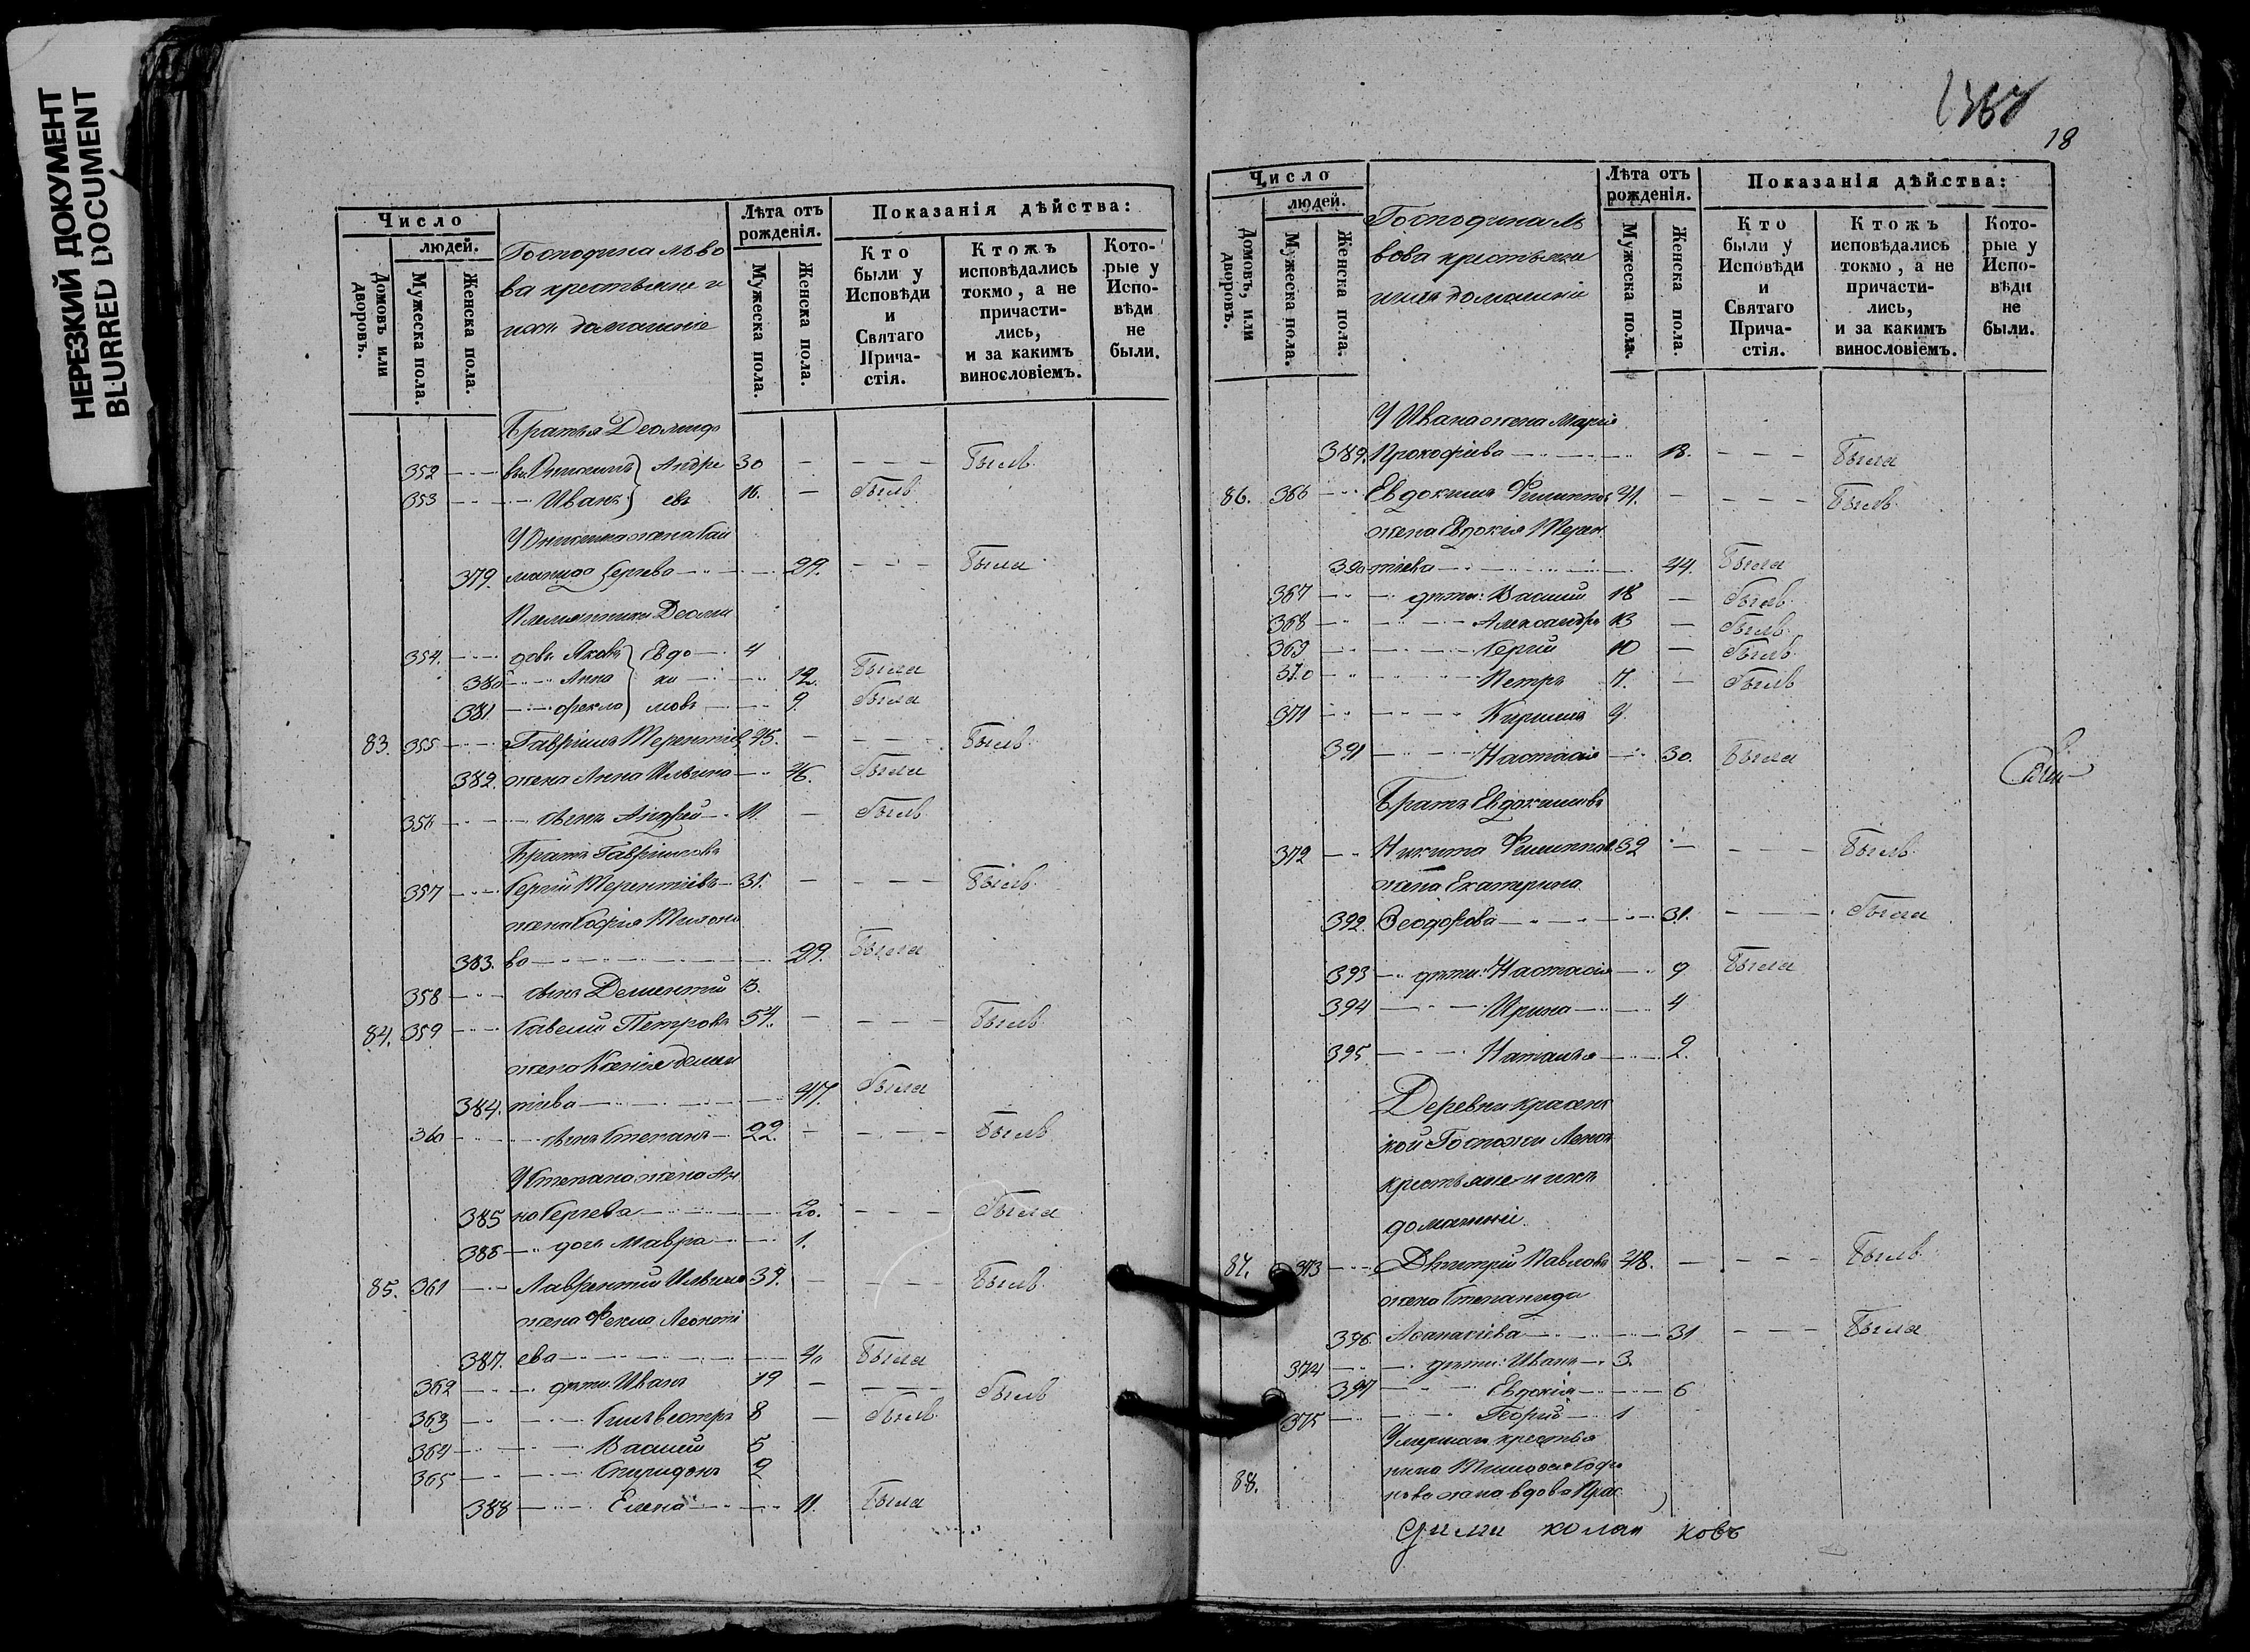 НЕРЕЗКИЙ ДОКУМЕНТ
BLURRED DOCUMENT
Число
людей.
Домовъ или дворовъ.
Мужеска пола.
Женска пола.
Господина Льво
ва крестьяне и
ихъ домашніе
Лѣта отъ рожденія.
Мужеска пола.
Женска пола.
Показанія дѣйства:
Кто были у Исповѣди и Святаго Причастія.
Ктожъ исповѣдались токмо, а не причастились, и за какимъ винословіемъ.
Которые у Исповѣди не были.
Братья
352 Андре 30 Былъ
353 Иванъ евъ 16. Былъ
жена
379. Сергева 29. Была
Племянники
354. Яковъ Евдо 4
380 Анна ки 12. Была
381. Фекла мовы 9. Была
83. 355 Гавріилъ Терентіев 45. Былъ
382. жена Анна Ильина 46. Была
356 сынъ Андрей 11. Былъ
Братъ Гавріиловъ
357 Сергій Терентіевъ 31. Былъ
жена Софія
383. ва 29. Была
358 сынъ Дементій 3.
84. 359 Савелій Петровъ 54. Былъ
жена Ксенія Демен
384. тіева 47. Была
360 сынъ Степанъ 22. Былъ
У Степана жена Ан
385 на Сергева 20. Была
386 дочь Мавра 1.
85. 361 Лаврентій Ильинъ 39. Былъ
жена Фекла Леонті
387. ева 40 Была
362 дѣти: Иванъ 19 Былъ
363 Сильвестръ 8 Былъ
364 Василій 5
365 Спиридонъ 2
388 Елена 11. Была
18
Число
людей.
Домовъ, или дворовъ.
Мужеска пола.
Женска пола.
Господина Ль
вова крестьяне
и ихъ домашніе
Лѣта отъ рожденія.
Мужеска пола.
Женска пола.
Показанія дѣйства:
Кто были у Исповѣди и Святаго Причастія.
Ктожъ исповѣдались токмо, а не причастились, и за какимъ винословіемъ.
Которые у Исповѣди не были.
У Ивана жена Марія
389. Прокофіева 18. Была
86. 366 Евдокимъ Филиппов 41. Былъ
жена Евдокія Терен
390 тіева 44. Была
367 дѣти: Василій 18 Былъ
368 Александръ 13 Былъ
369 Сергій 10 Былъ
370 Петръ 7. Былъ
371 Кирилла 4.
391 Настасія 30. Была
Братъ Евдокимовъ
372 Никита Филиппов 32 Былъ
жена Екатерина
392. Ѳеодорова 31. Была
393 дѣти: Настасія 9 Была
394 Ирина 4
395 Наталья 2.
Деревни
кой Госпожи
крестьяне и ихъ
домашніе.
87. 373 Дмитрій Павловъ 48. Былъ
жена Степанида
396. Аѳанасіева 31 Была
374 дѣти: Иванъ 3.
397 Евдокія 6
375 Георгій 1
крестья
нина
88. жена вдова